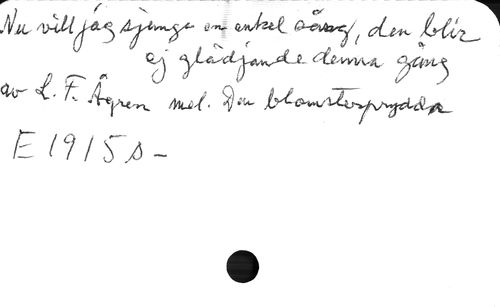 Nu vill jag sjunga en enkel sång, den blir
ej glädjande denna gång
av L. F. Ågren mel. Den blomsterprydda
E 1915 s -